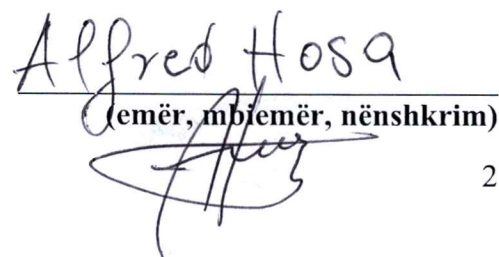 Alfred Hosa
(emër, mbiemër, nënshkrim)
2